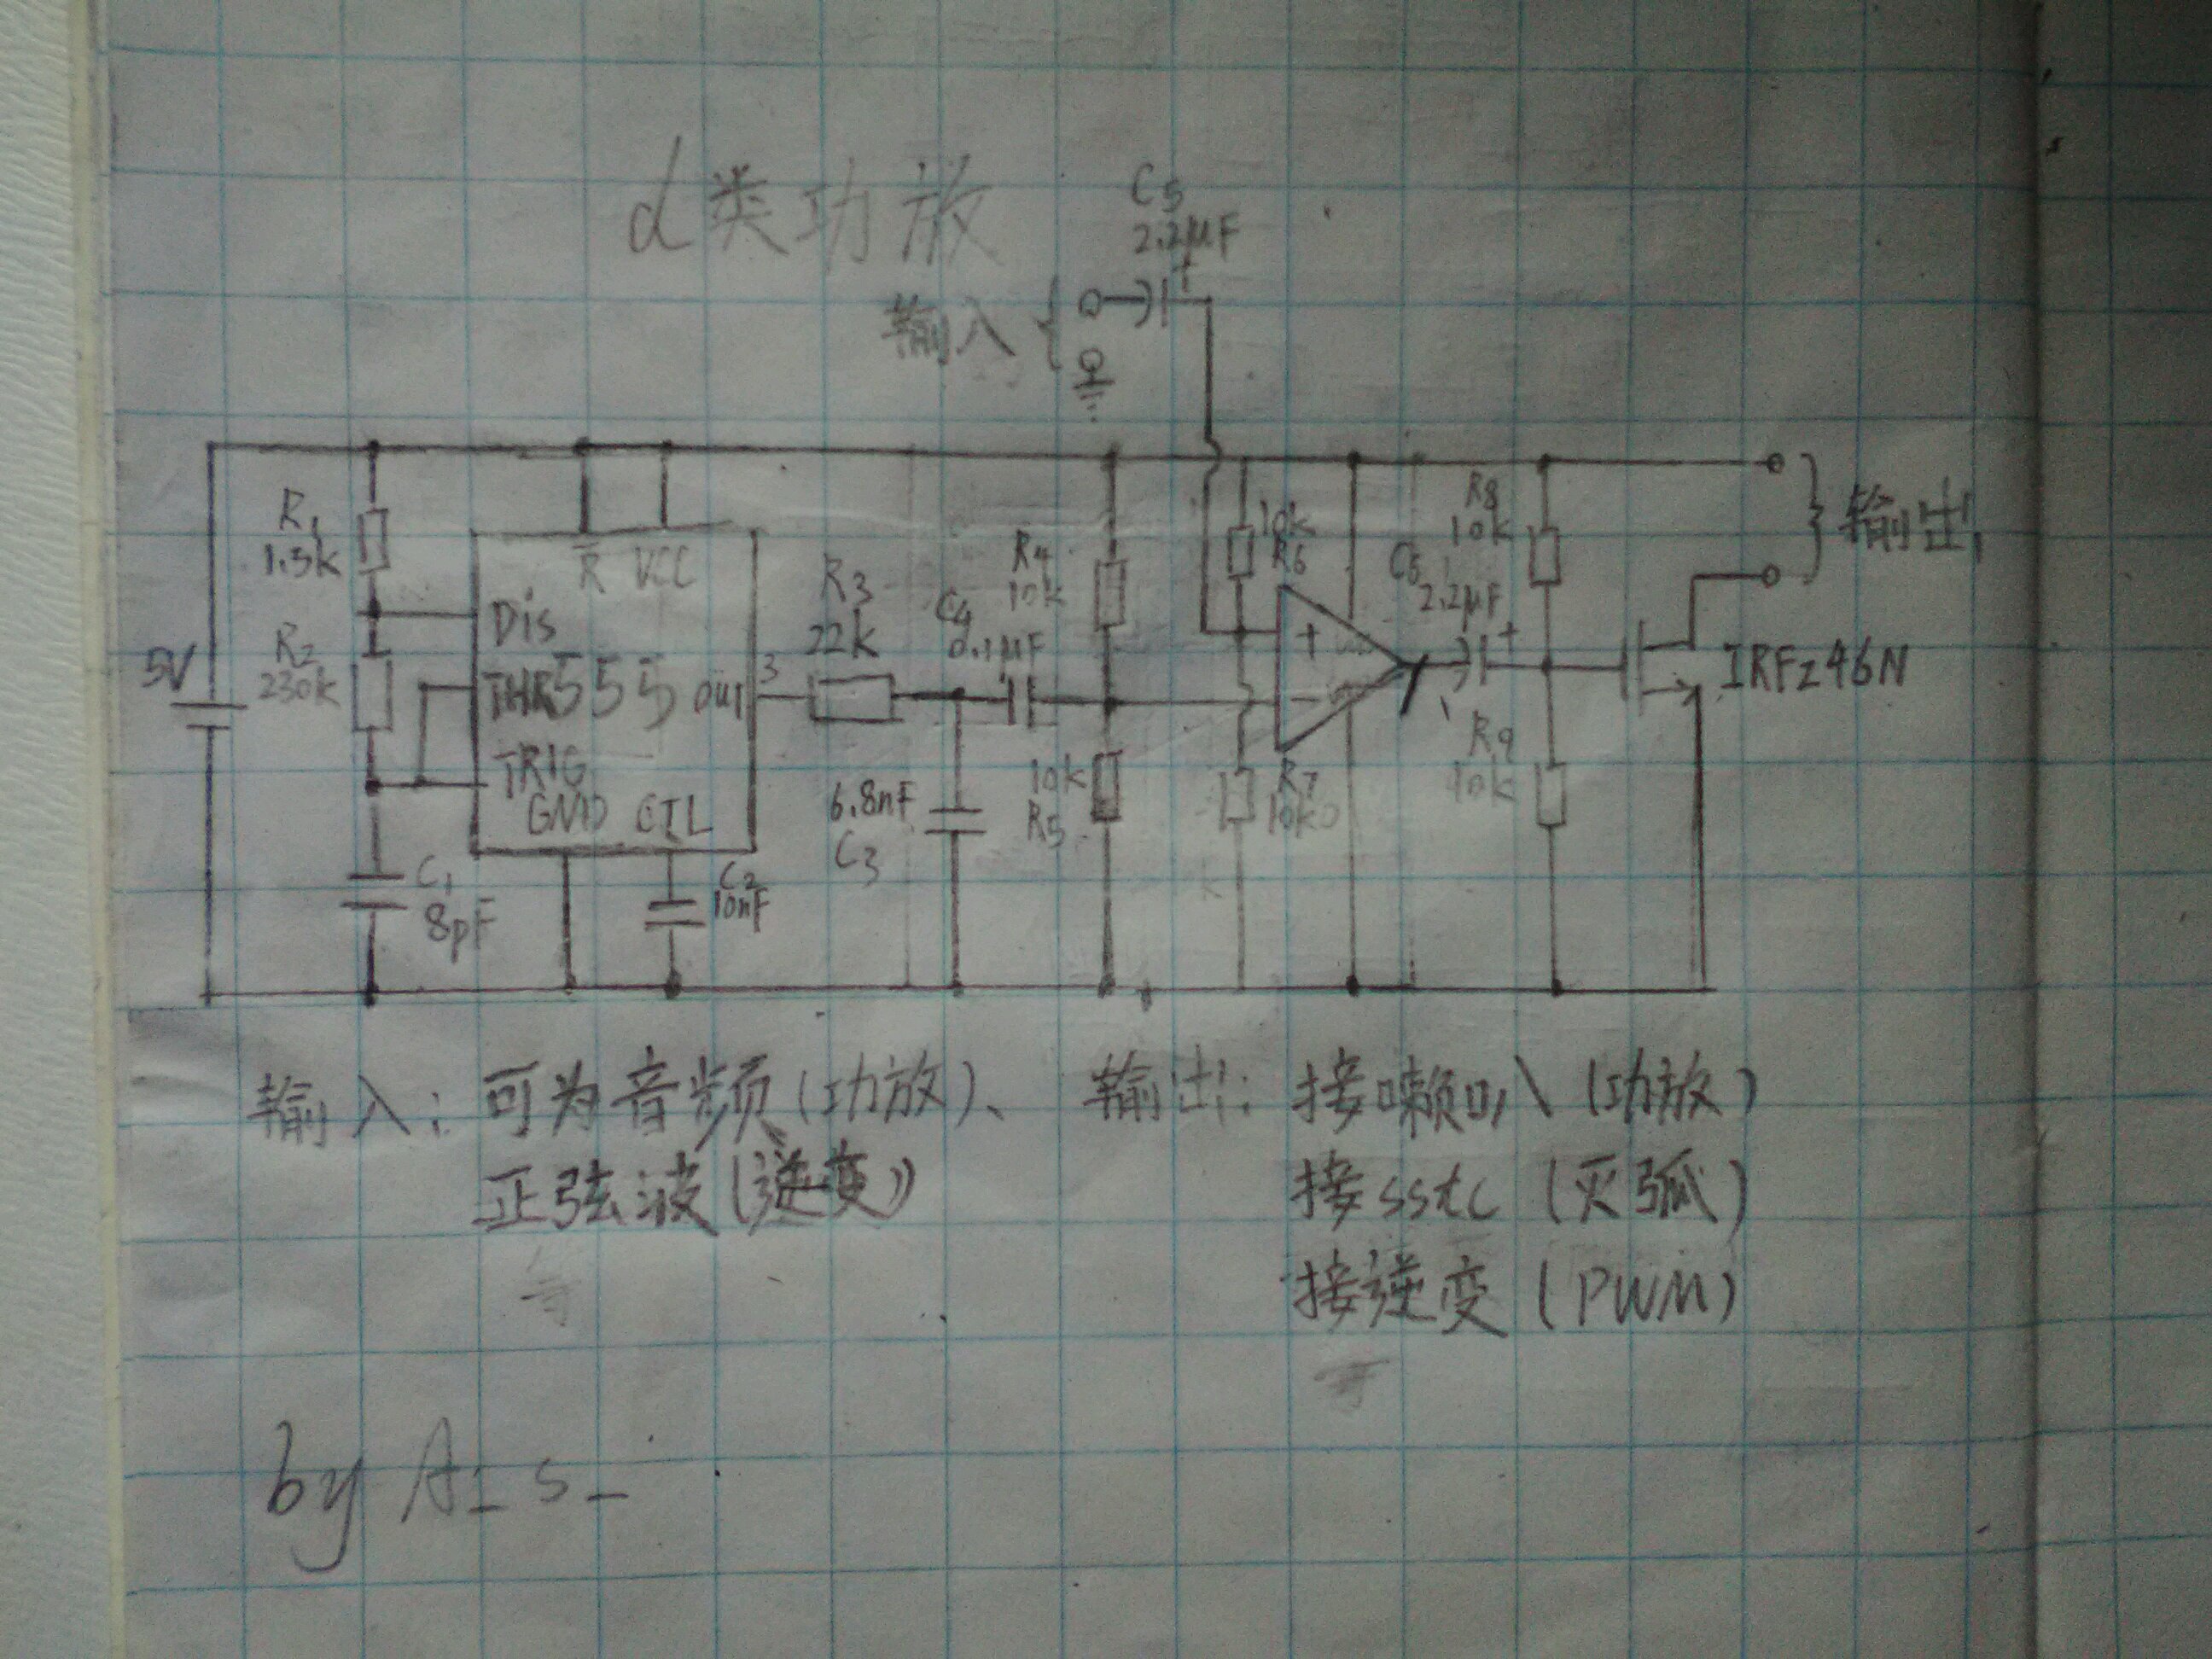 d类功放
C5
2.2μF
+
输入
R1
1.5k
R2
230k
5V
R VCC
Dis
THR 555 out 3
TRIG
GND CTL
C1
8pF
C2
10nF
R3
22k
C4
0.1μF
6.8nF
C3
R4
10k
10k
R5
10k
R6
R7
10k
+
-
C6
2.2μF
+
R8
10k
R9
10k
IRFz46N
输出
输入: 可为音频(功放)、
正弦波(逆变)
等
输出: 接喇叭(功放)
接sstc(灭弧)
接逆变(PWM)
等
by A_s_